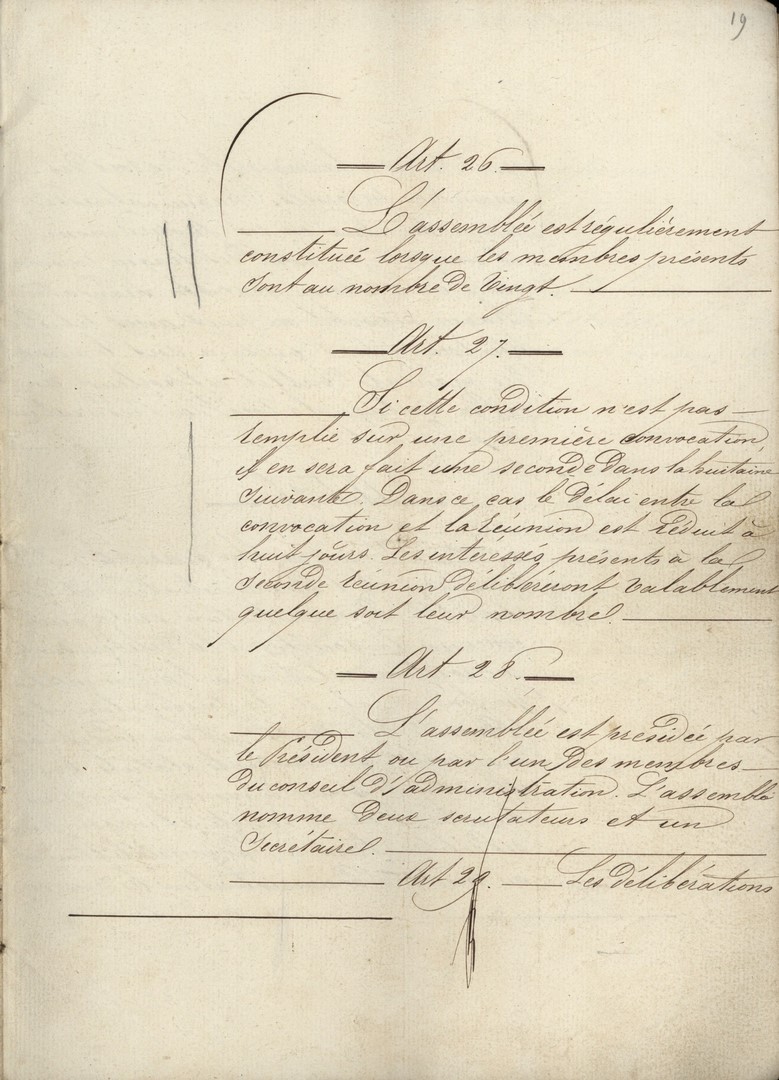 19
Art. 26
L'assemblée est régulièrement
constituée lorsque les membres présents
sont au nombre de vingt.
Art. 27
Si cette condition n'est pas
remplie sur une première convocation,
il en sera fait une seconde dans la huitaine
suivante. Dans ce cas le délai entre la
convocation et la réunion est réduit à
huit jours. Les intéressés présents à la
seconde réunion délibéreront valablement
quelque soit leur nombre.
Art. 28.
L'assemblée est présidée par
le Président ou par l'un des membres
du conseil d'administration. L'assemblée
nomme deux scrutateurs et un
Secrétaire.
Art 29. Les délibérations